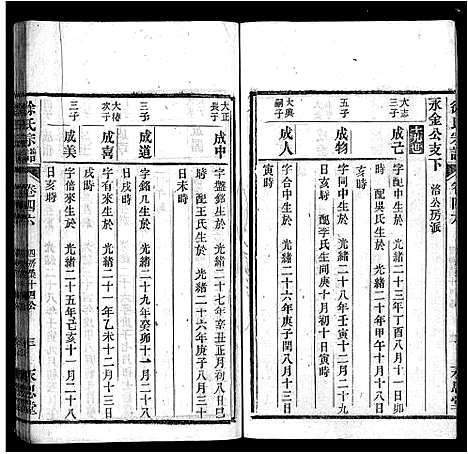 徐氏宗譜
卷四六
永金公支下
洛公房派
大志
三子
成己
字配中生於 光緒二十三年丁酉八月十一日卯
時 配吳氏生於 光緒二十年甲午十月十一日
五子
成物
字同中生於 光緒二十八年壬寅十二月二十九
時 配李氏生於同庚十月初十日寅時
大興
嗣子
成人
字合中生於 光緒二十六年庚子閏八月十三日
寅時
大正
長子
成中
字盤銘生於 光緒二十七年辛丑正月初八日巳
時 配王氏生於 光緒二十六年庚子八月三十
日未時
三子
成道
字銘几生於 光緒二十九年癸卯十一月十八
日戌時
大椿
次子
成喜
字有來生於 光緒二十一年乙未十二月十三日
時
三子
成美
字倍來生於 光緒二十五年己亥十一月二十八
日亥時
徐氏宗譜
卷四六
三